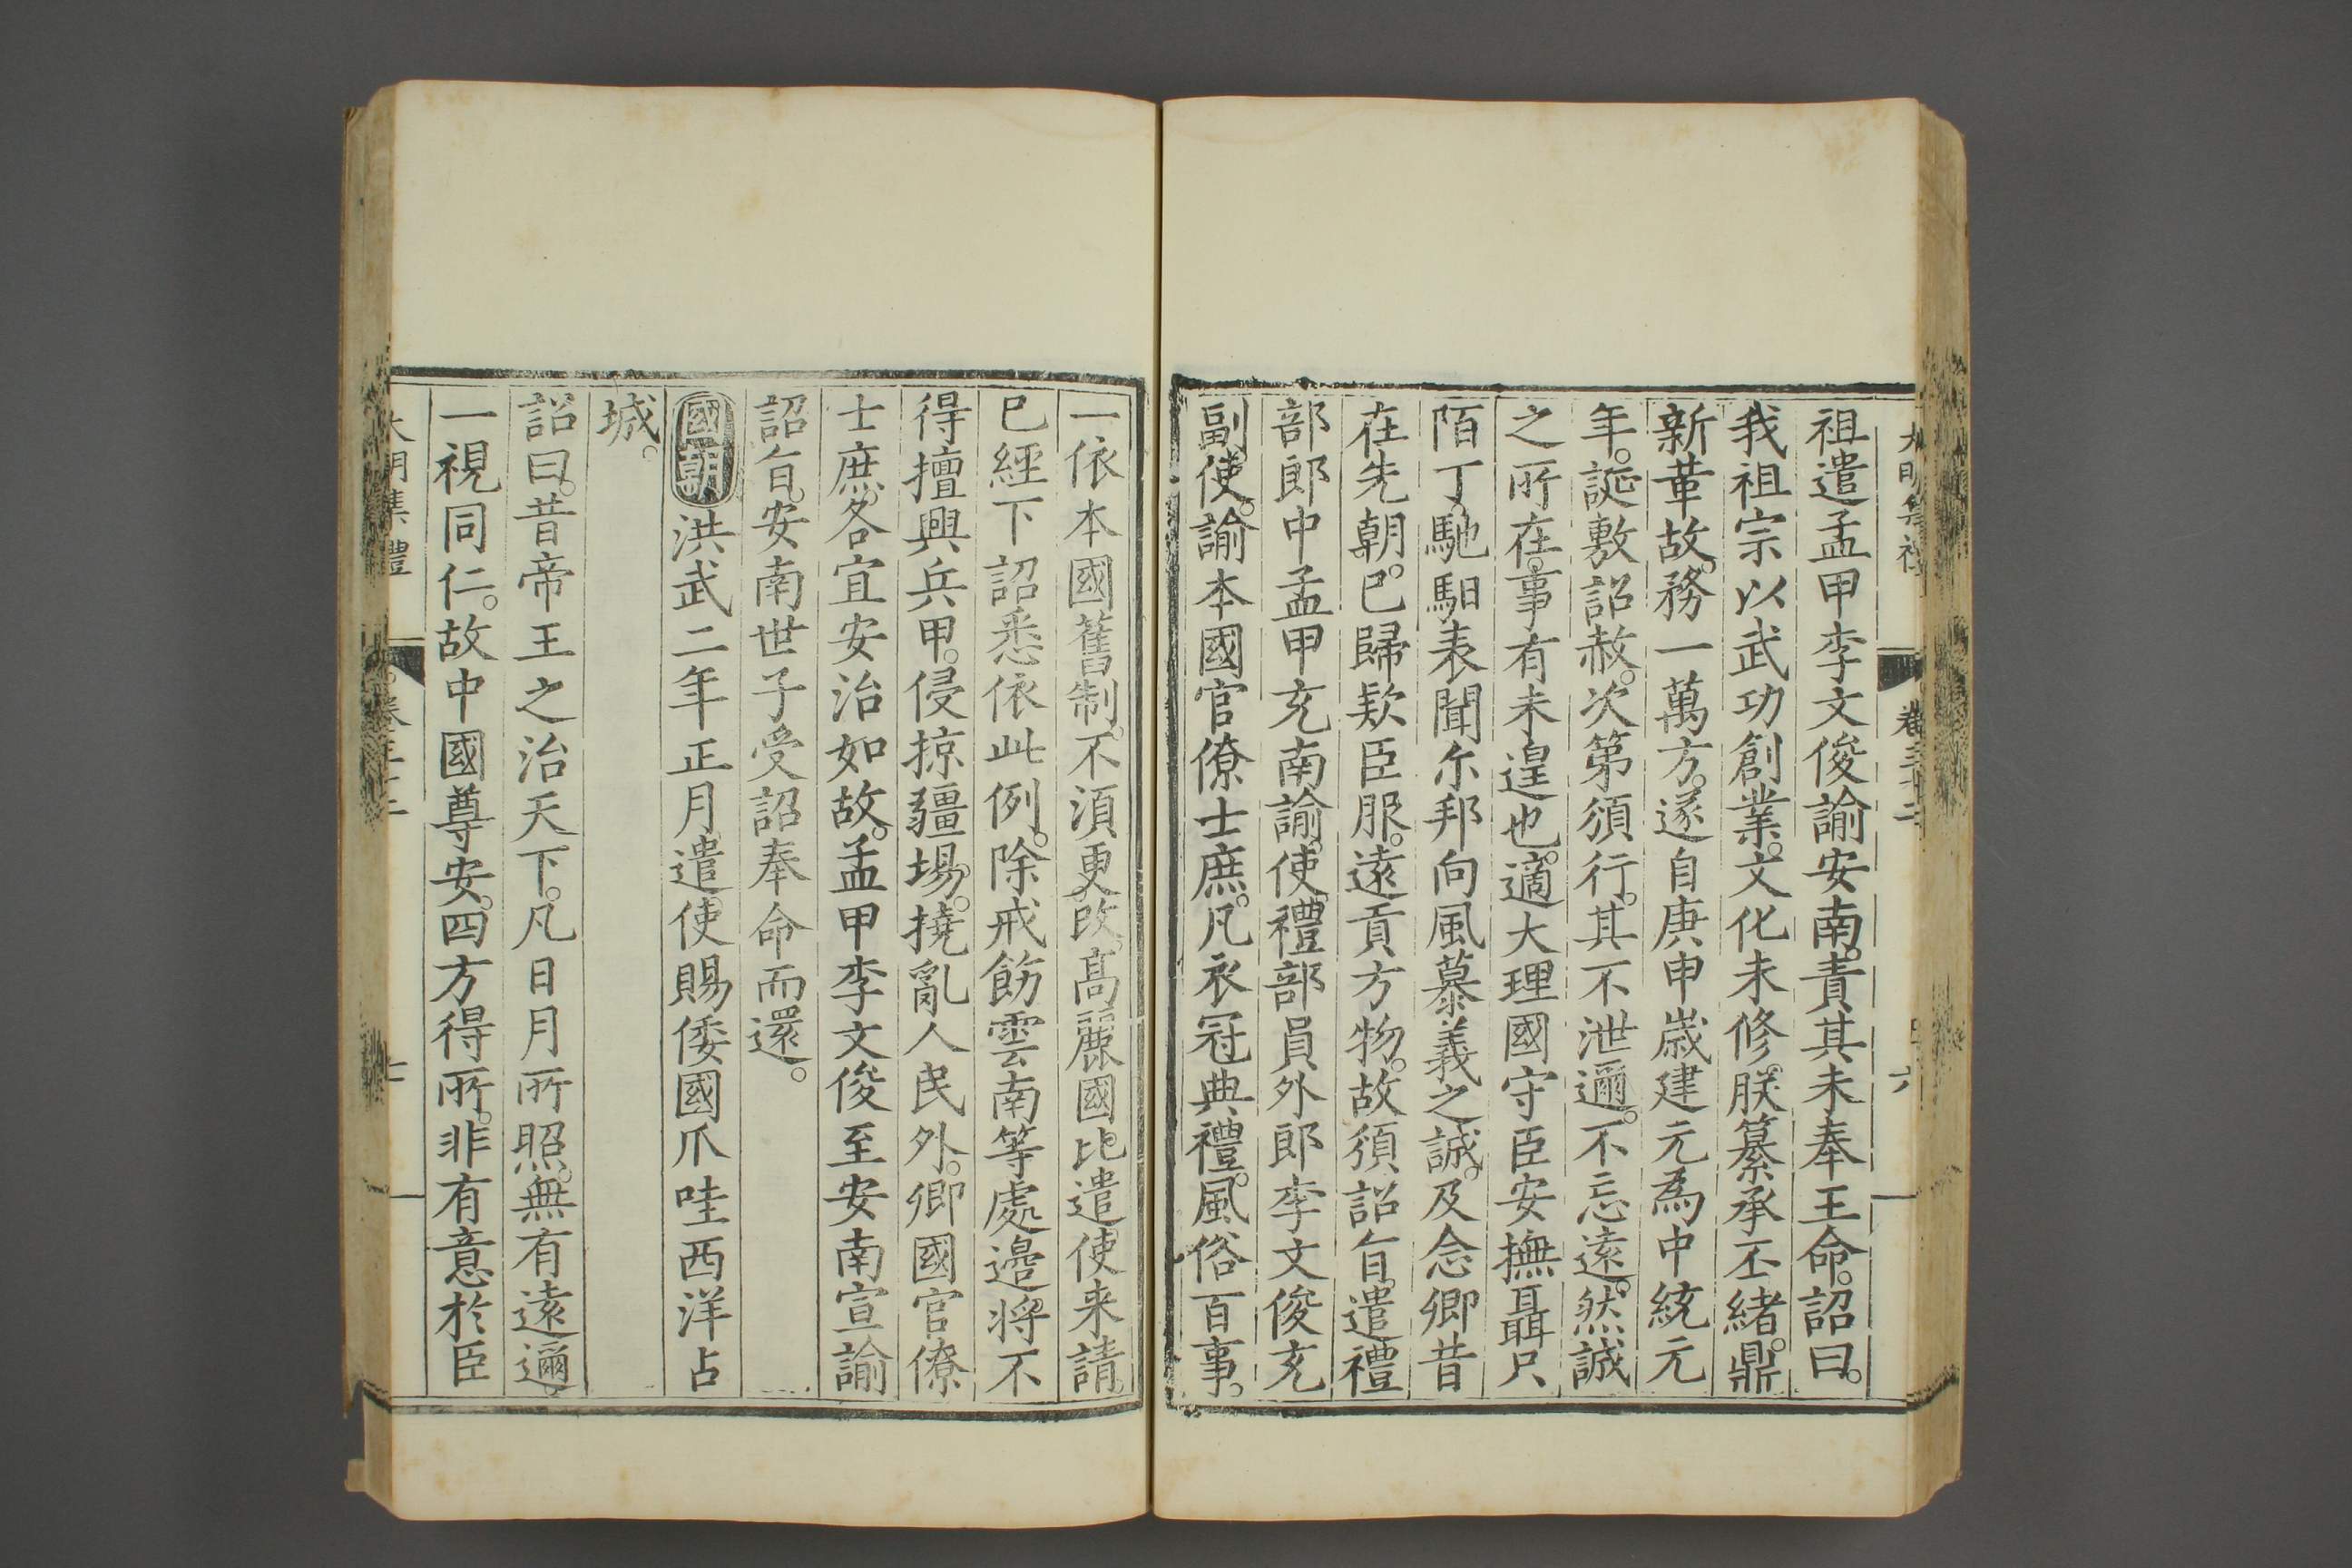 大明集禮 卷三十二 六
祖遣孟甲李文俊諭安南。責其未奉王命。詔曰。
我祖宗以武功創業。文化未修。朕纂承丕緒。鼎
新革故。務一萬方。遂自庚申嵗建元爲中統元
年。誕敷詔赦。次第頒行。其不泄邇。不忘遠。然誠
之所在。事有未遑也。適大理國守臣安撫聶只
陌丁。馳馹表聞尓邦向風慕義之誠。及念卿昔
在先朝。已歸欵臣服。遠貢方物。故頒詔㫖。遣禮
部郎中孟甲充南諭。使。禮部員外郎李文俊充
副使。諭本國官僚士庶。凡衣冠典禮。風俗百事。
一依本國舊制。不湏更改。髙麗國比遣使来請。
已經下詔悉依此例。除戒飭雲南等處邉將不
得擅興兵甲。侵掠疆場。撓亂人民外。卿國官僚
士庶。各宜安治如故。孟甲李文俊至安南宣諭
詔㫖。安南世子受詔奉命而還。
國朝洪武二年正月遣使賜倭國爪哇西洋占
城。
詔曰。昔帝王之治天下。凡日月所照。無有遠邇。
一視同仁。故中國尊安。四方得所。非有意於臣
大明集禮 卷三十二 七